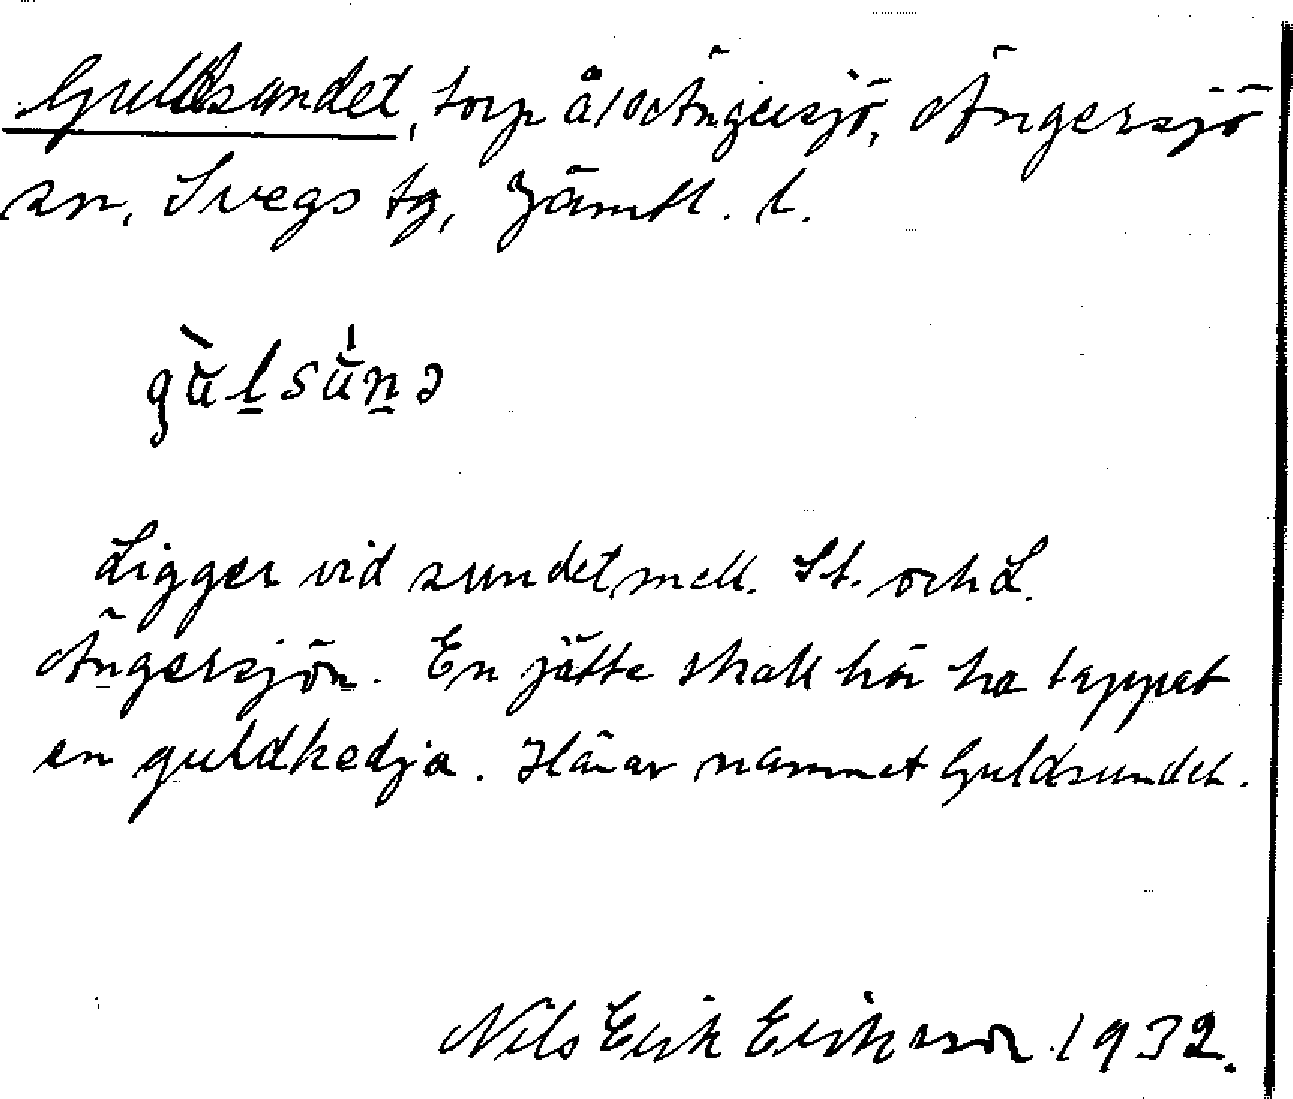 Guldsundet, torp å Ängersjö, Ängersjö
sn, Svegs tg, Jämtl. l.
gu̇̀l̠sun̠ə
Ligger vid sundet mell. St. och L.
Ängersjön. En jätte skall här ha tappat
en guldkedja. Härav namnet Guldsundet.
Nils Erik Eriksson 1932.